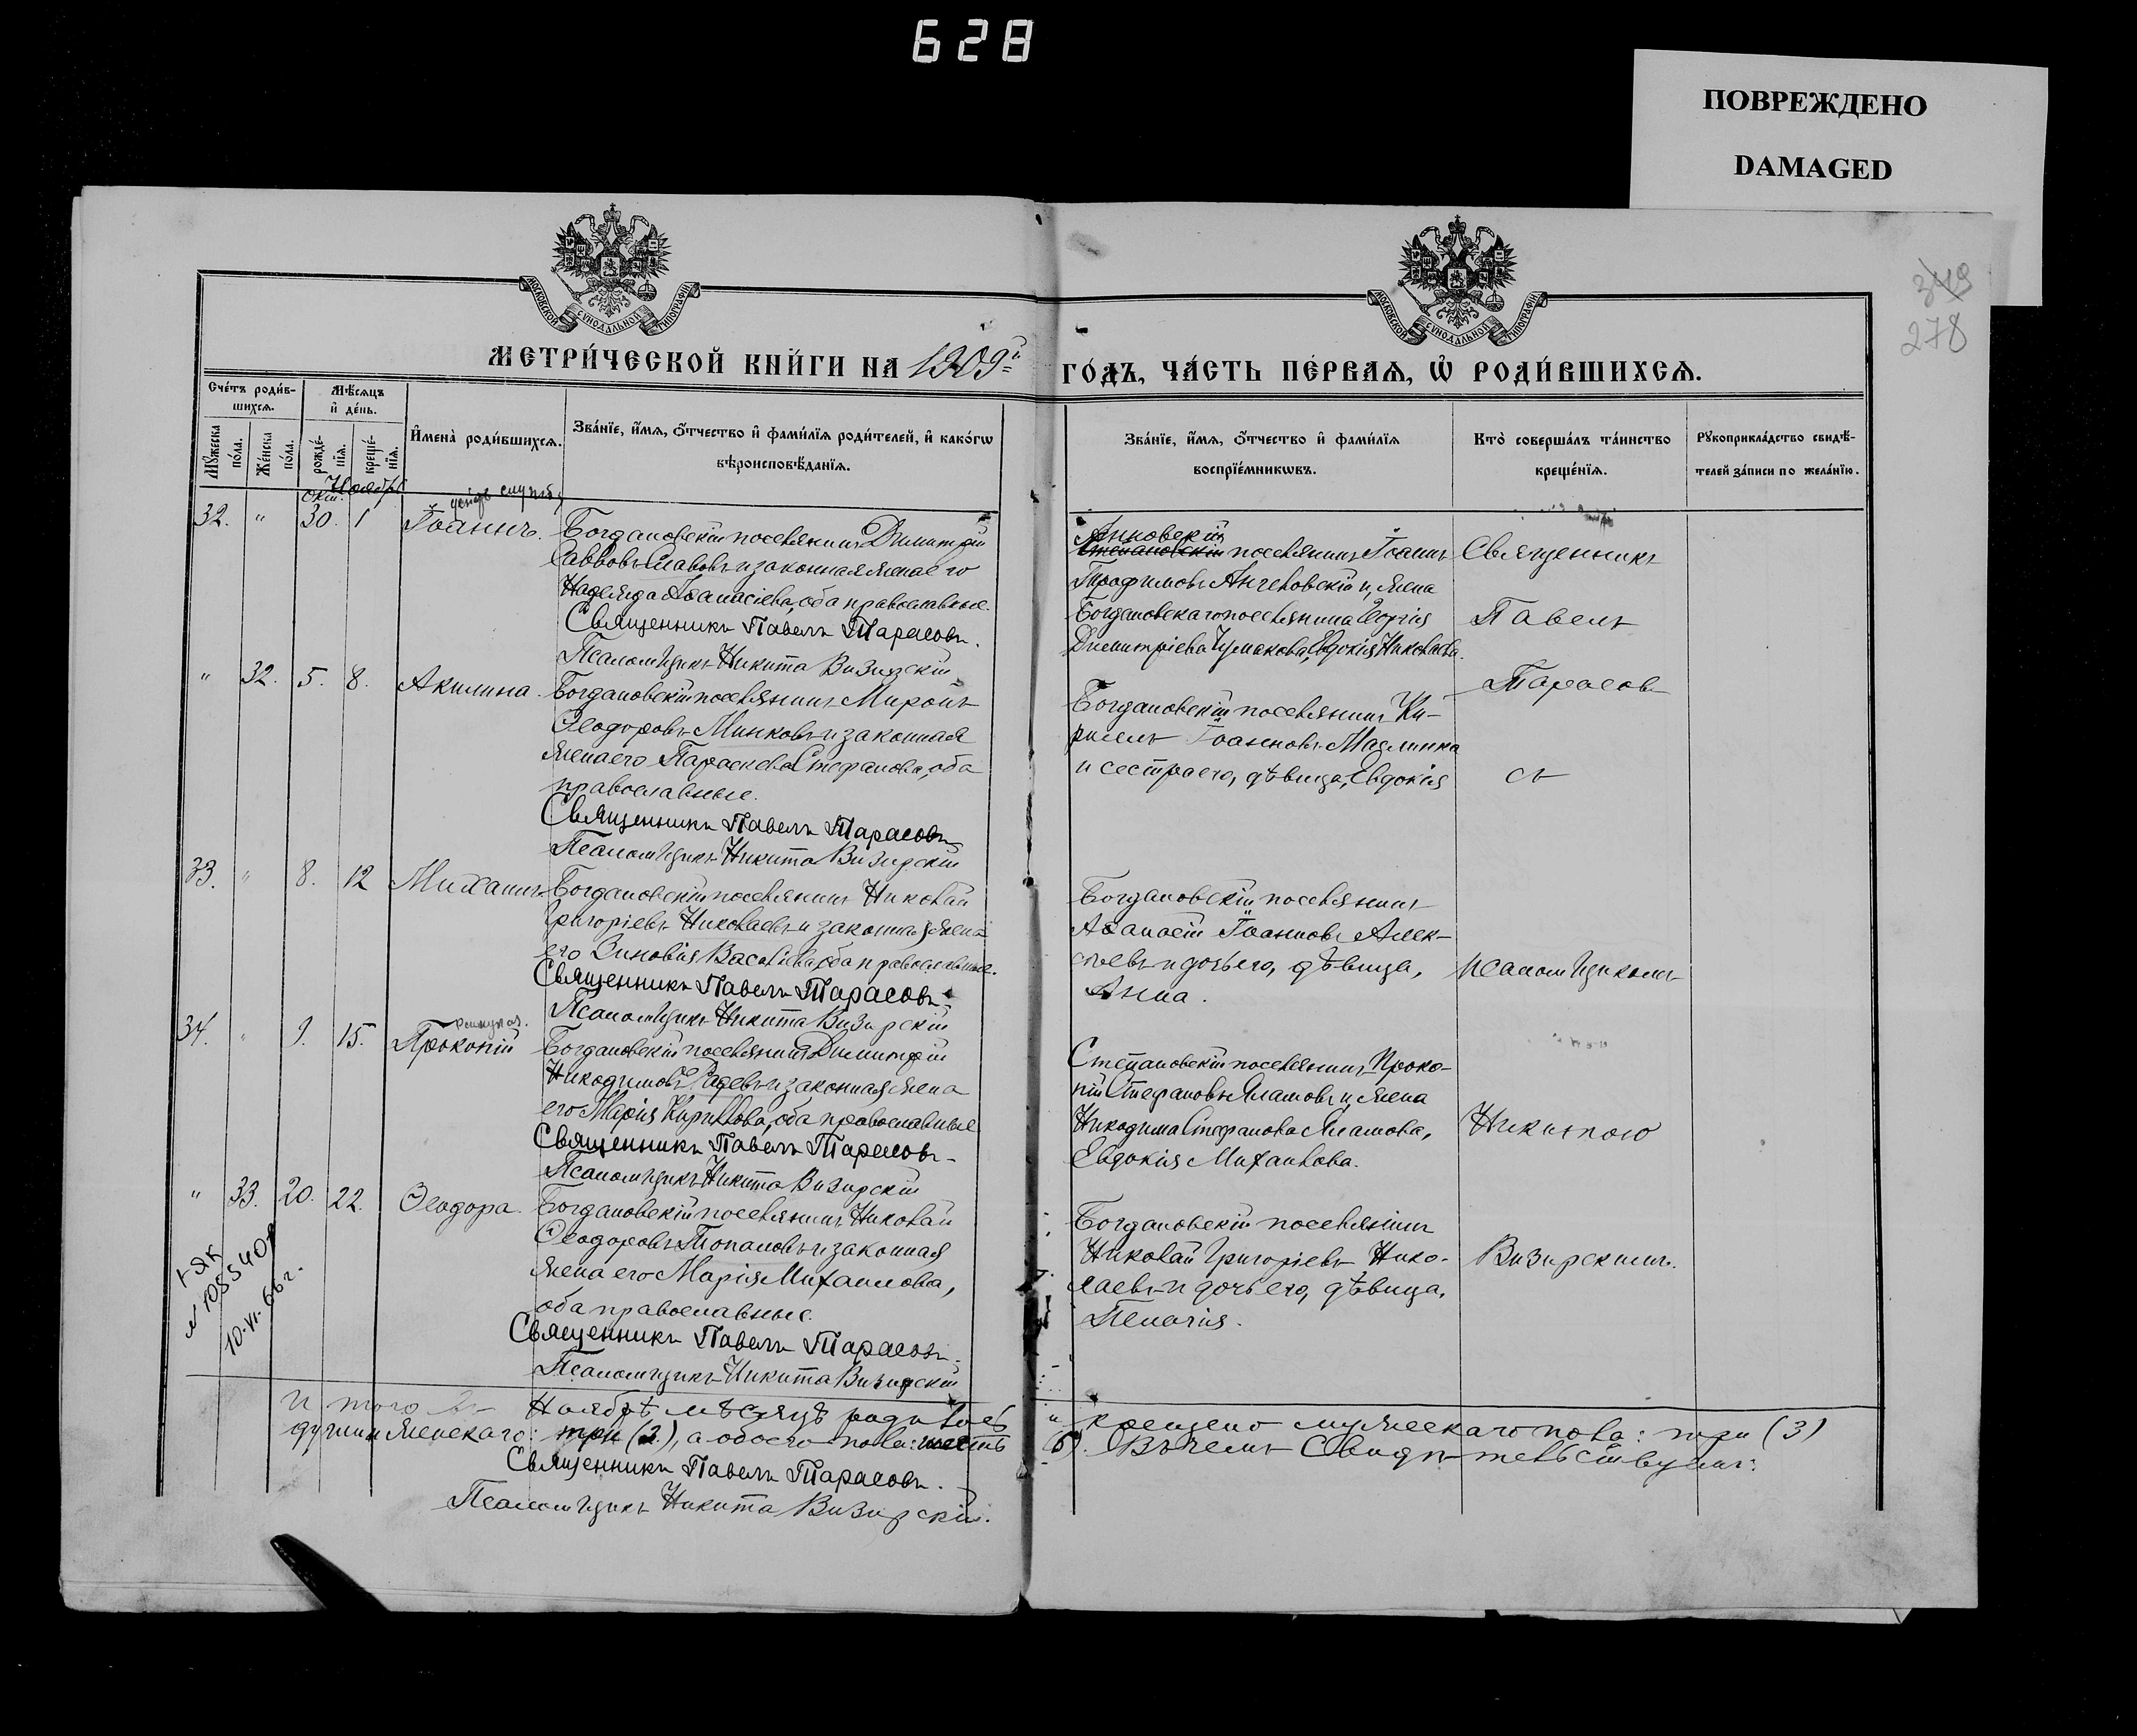 628
ПОВРЕЖДЕНО
DAMAGED
349
278
МОСКОВСКОЙ СѴНОДАЛЬНОЙ ТИПОГРАФІИ
МОСКОВСКОЙ СѴНОДАЛЬНОЙ ТИПОГРАФІИ
МЕТРИ́ЧЕСКОЙ КНИ́ГИ НА 1909й ГО́ДЪ, ЧА́СТЬ ПЕ́РВАЯ, Ѡ РОДИ́ВШИХСЯ.
Сче́тъ роди́в-
шихсѧ.
Мꙋ́жеска по́ла.
Же́нска по́ла.
Мѣ́сѧцъ
и҆ де́нь.
рожде́-
нїѧ.
креще́-
нїѧ.
И҆мена̀ роди́вшихсѧ.
Зва́нїе, и҆́мѧ, ѻ҆́тчество и҆ фами́лїѧ роди́телей, и҆ како́гѡ
вѣроисповѣ́данїѧ.
Зва́нїе, и҆́мѧ, ѻ҆́тчество и҆ фами́лїѧ
воспрїе́мникѡвъ.
Кто̀ соверша́лъ та́инство
креще́нїѧ.
Рꙋкоприкла́дство свидѣ́-
телей за́писи по жела́нїю.
Окт. Ноябрь
32. " 30. 1 Іоаннъ. Богдановскій поселянинъ Димитрій
Саввовъ Славовъ и законная жена его
Надежда Аѳанасіева, оба православные.
Священникъ Павелъ Тарасовъ.
Псаломщикъ Никита Визирскій
Анновскій
Степановскій поселянинъ Іоаннъ
Трофимовъ Ангеловскій и, жена
Богдановскаго поселянина Георгія
Димитріева Чумакова, Евдокія Николаева.
Священникъ
Павелъ
Тарасовъ
съ
псаломщикомъ
Никитою
Визирскимъ.
" 32. 5. 8. Акилина. Богдановскій поселянинъ Миронъ
Ѳеодоровъ Минковъ и законная
жена его Параскева Стефанова, оба
православные.
Священникъ Павелъ Тарасовъ
Псаломщикъ Никита Визирскій
Богдановскій поселянинъ Ки-
риллъ Іоанновъ Маслинка
и сестра его, дѣвица, Евдокія
33. " 8. 12 Михаилъ Богдановскій поселянинъ Николай
Григоріевъ Николаевъ и законная жена
его Зиновія Васильева, оба православные.
Священникъ Павелъ Тарасовъ.
Псаломщикъ Никита Визирскій
Богдановскій поселянинъ
Аѳанасій Іоанновъ Алек-
сѣевъ и дочь его, дѣвица,
Анна.
34. " 9. 15. Прокопій Богдановскій поселянинъ Димитрій
Никодимовъ Радевъ и законная жена
его Марія Кириллова, оба православные
Священникъ Павелъ Тарасовъ
Псаломщикъ Никита Визирскій
Степановскій поселянинъ Проко-
пій Стефановъ Яламовъ и, жена
Никодима Стефанова Яламова,
Евдокія Михайлова.
" 33. 20. 22. Ѳеодора. Богдановскій поселянинъ Николай
Ѳеодоровъ Топаловъ и законная
жена его Марія Михаилова,
оба православные.
Священникъ Павелъ Тарасовъ.
Псаломщикъ Никита Визирскій
Богдановскій поселянинъ
Николай Григоріевъ Нико-
лаевъ и дочь его, дѣвица,
Пелагія.
10-VI-66 г.
Итого въ Ноябрѣ мѣсяцѣ родилось и крещено мужескаго пола: три (3)
женскаго: а обоего пола: Въ чемъ свидѣтельствуемъ:
Священникъ Павелъ Тарасовъ.
Псаломщикъ Никита Визирскій.